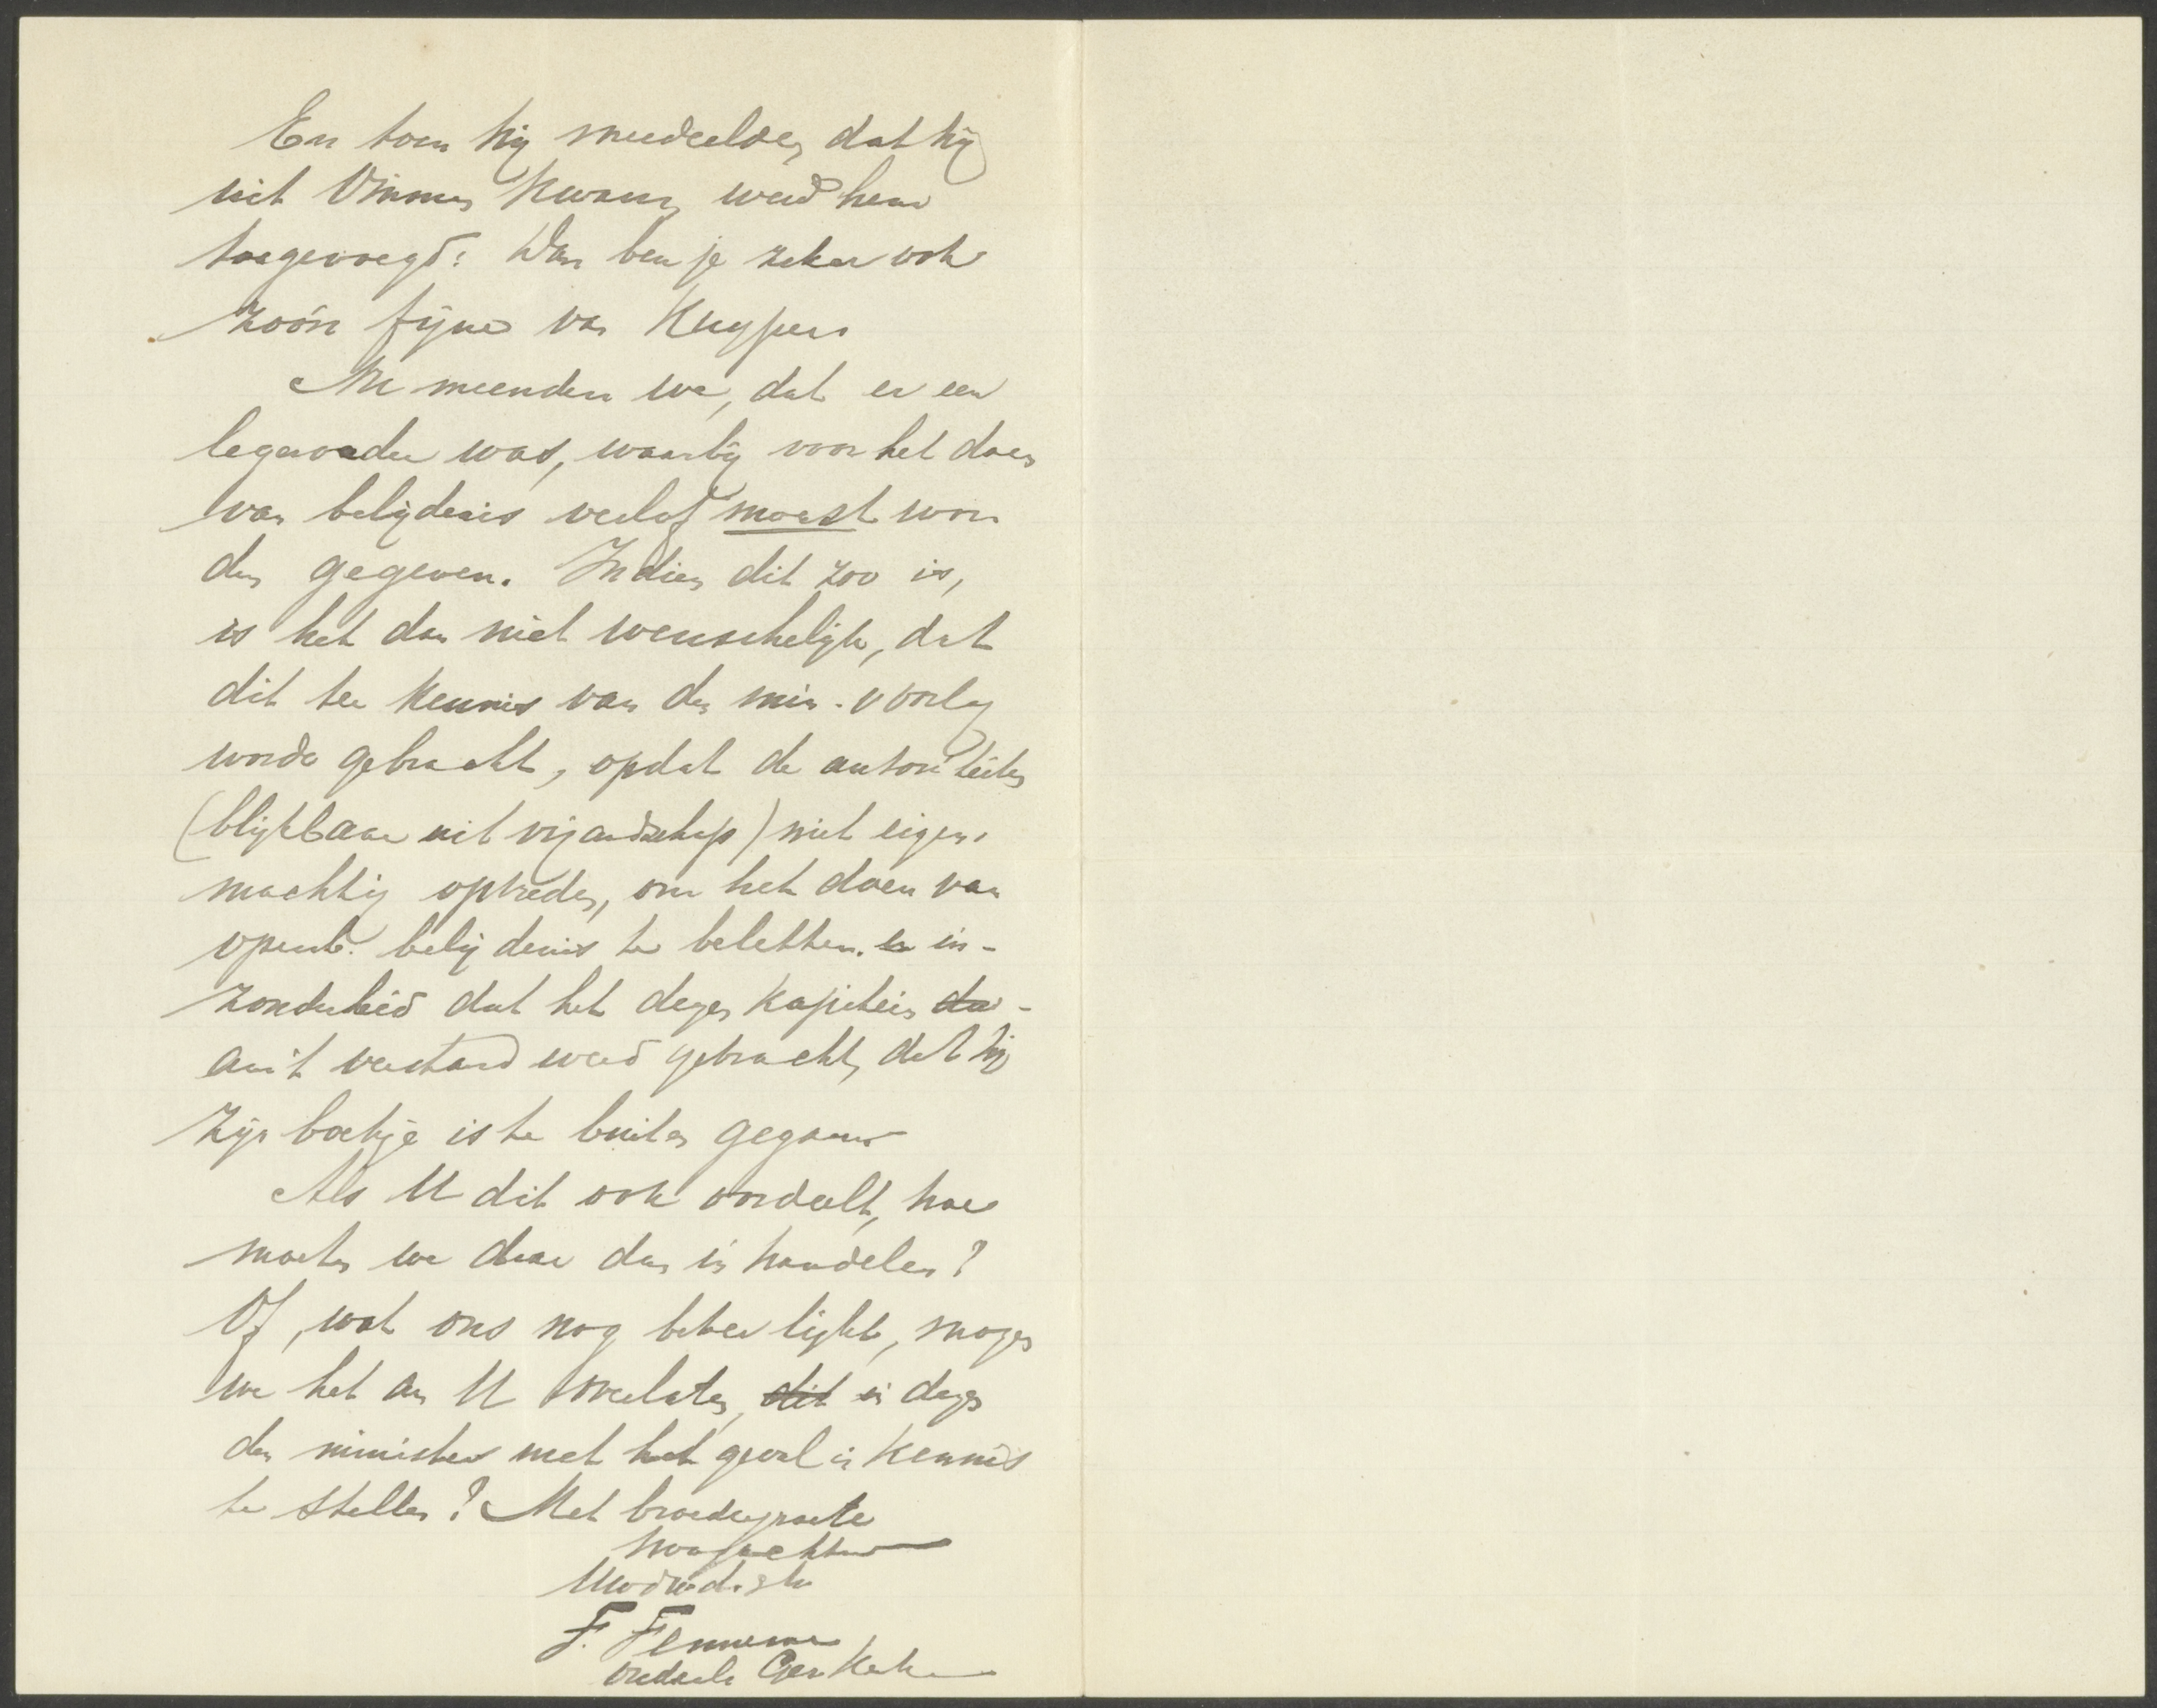 En toen hij meedeelde, dat hij
uit Ommen kwam, werd hem
toegevoegd: Dan ben je zeker ook
zoo'n fijne van Kuyper.
Nu meenden we, dat er een
legerorder was, waarbij voor het doen
van belijdenis verlof moest wor
den gegeven. Indien dit zoo is,
is het dan niet wenschelijk, dat
dit ter kennis van den min. v oorlog
worde gebracht, opdat de autoriteiten
(blijkbaar uit vijandschap) niet eigen-
machtig optreden, om het doen van
openb. belijdenis te beletten. en in-
zonderheid dat het dezen kapitein da-
an 't verstand werd gebracht, dat hij
zijn boekje is te buiten gegaan
Als U dit ook oordeelt, hoe
moeten we daar dan in handelen?
Of, wat ons nog beter lijkt, mogen
we het an U overlaten, dit in dezen
den minister met het geval in kennis
te stellen? Met broedergroete
hoogachtend
Uwdwd. str
F. Fennema
ouderl. Ger. Kerk